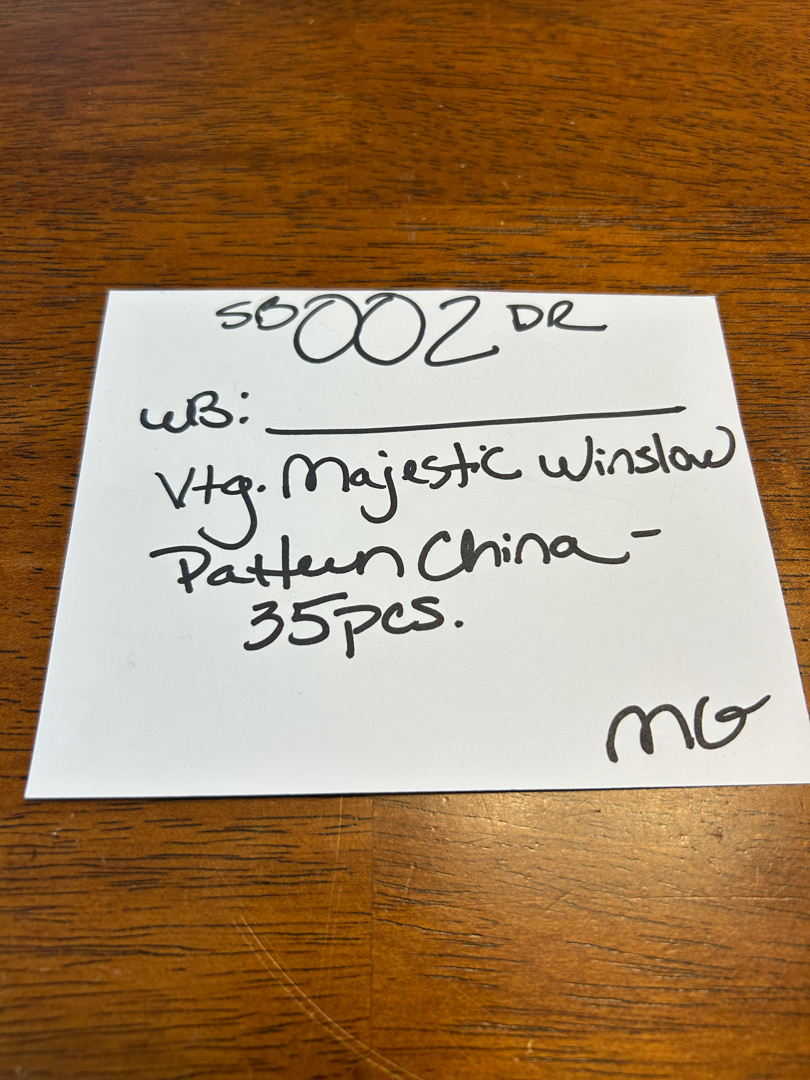 SB 002 DR
WB: 
Vtg. Majestic Winslow
Pattern China -
35pcs.
MG